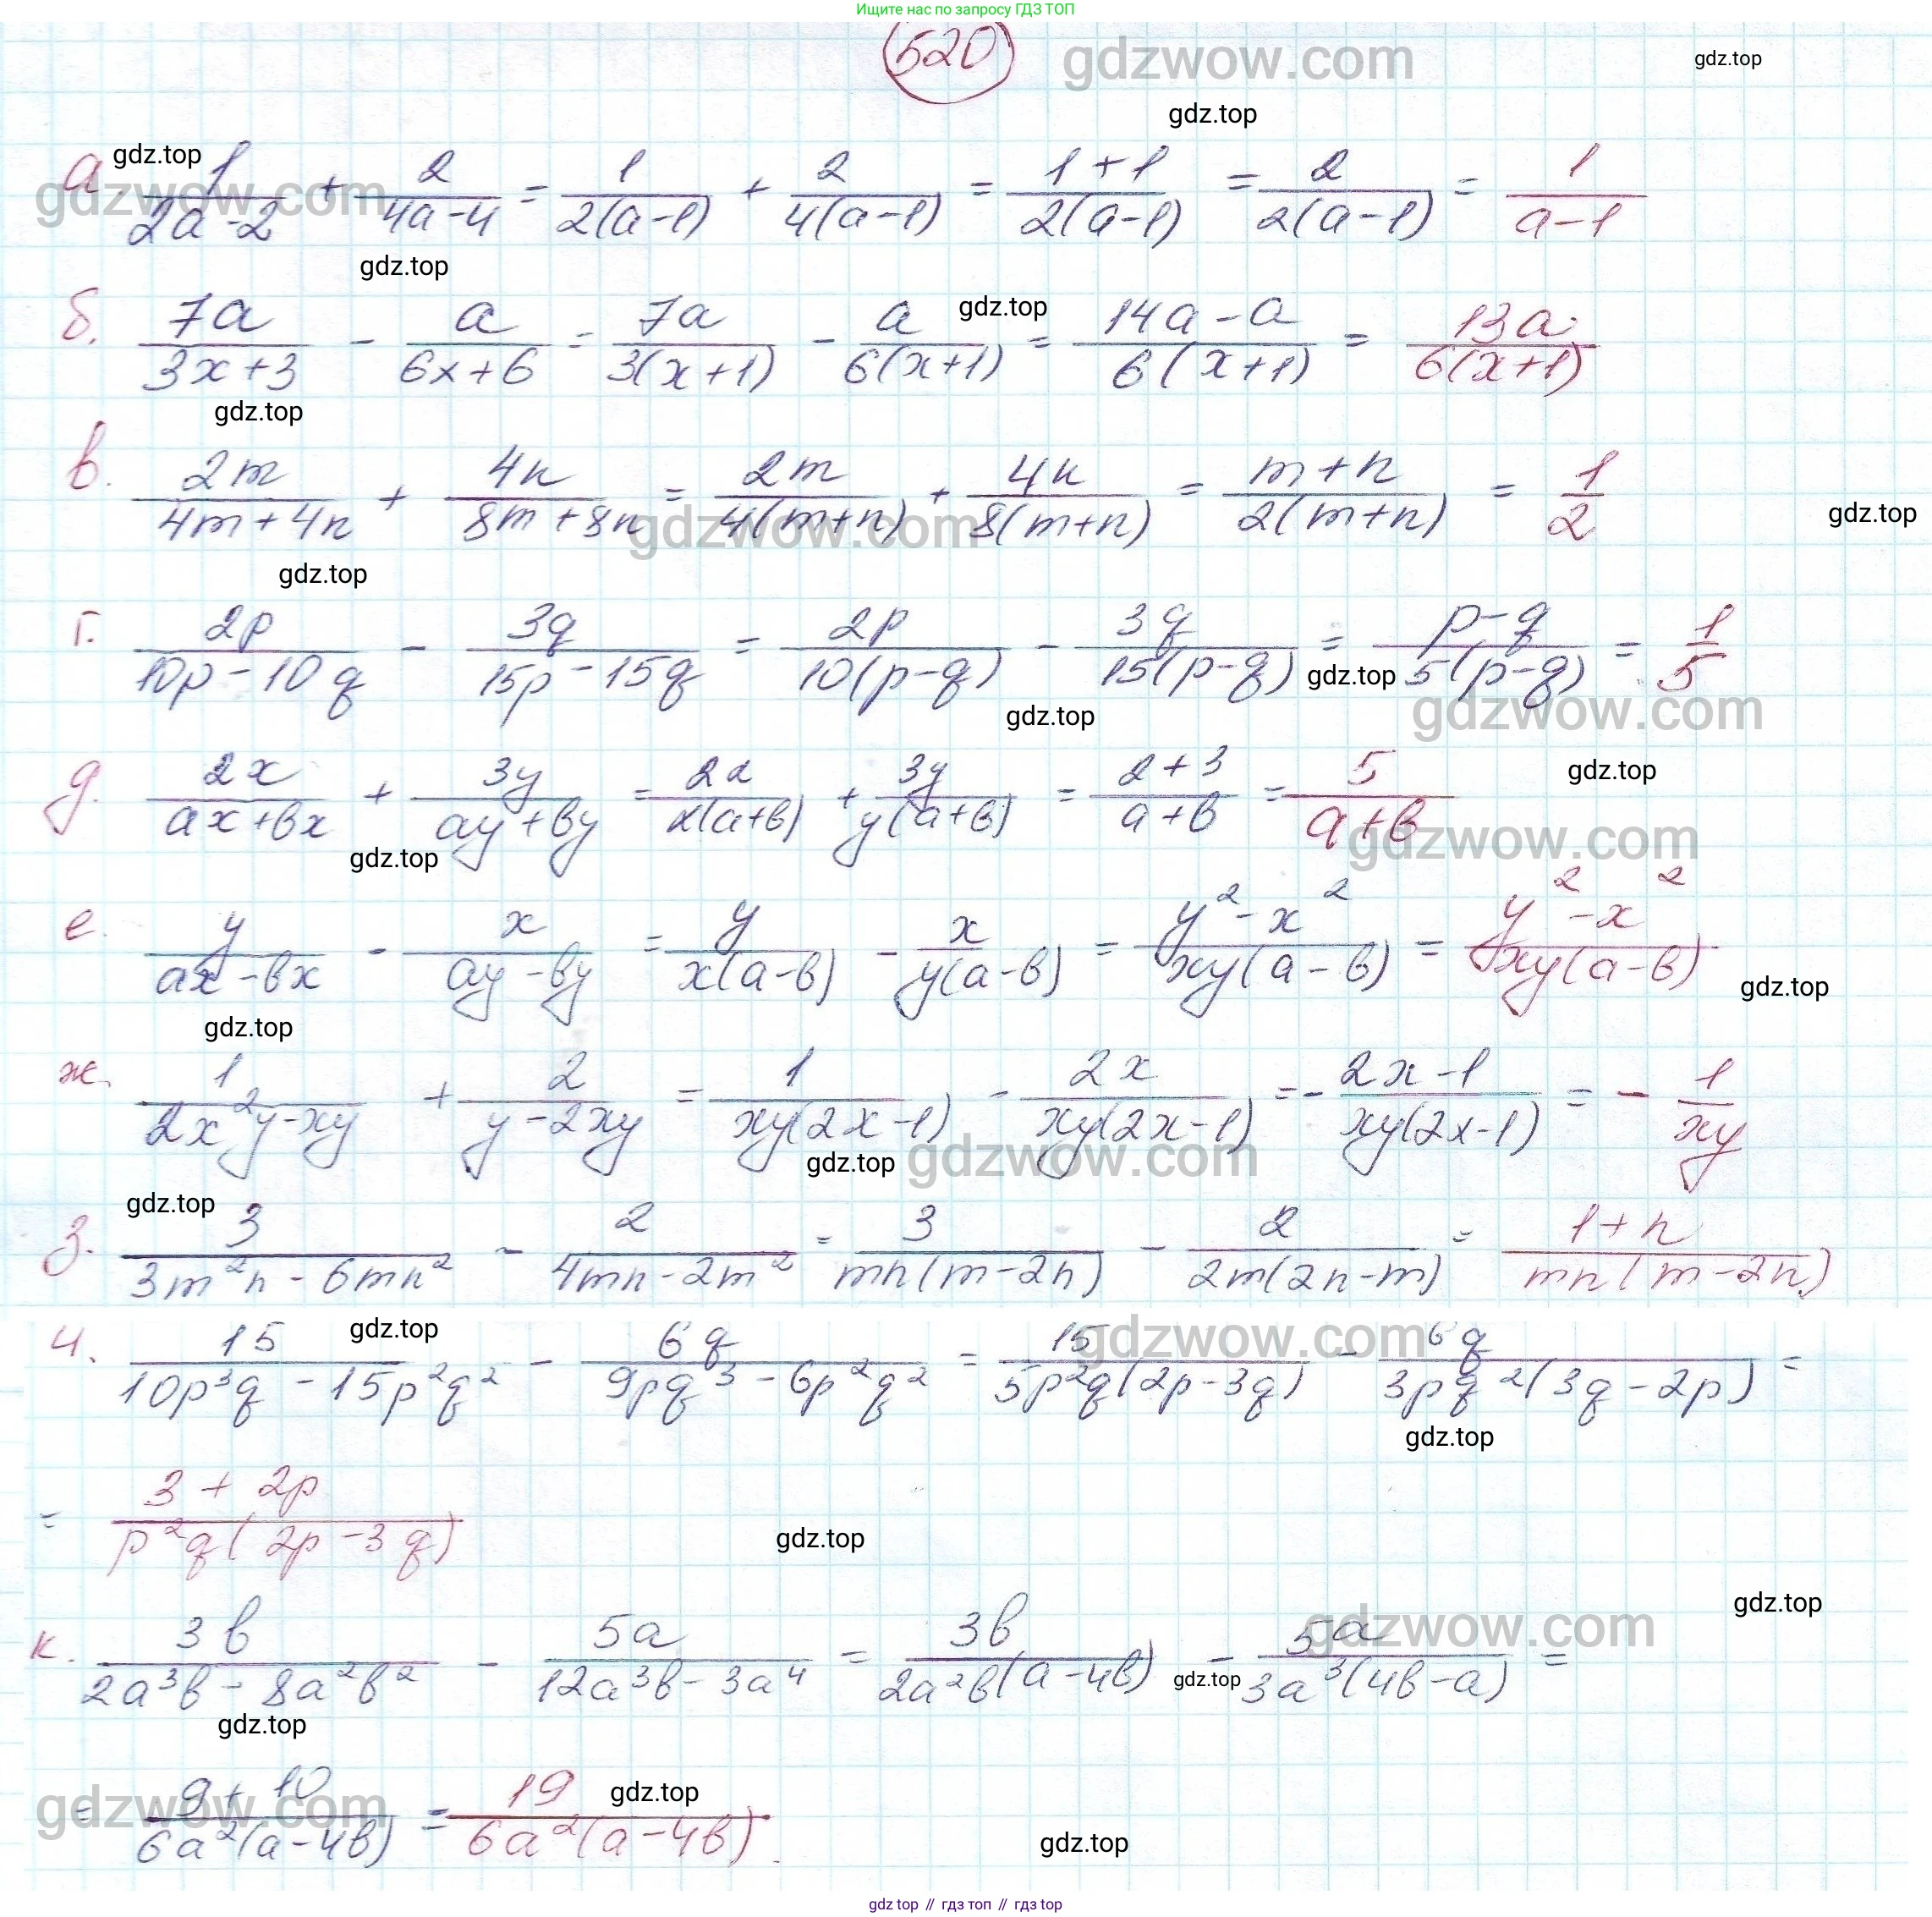 Ищите нас по запросу ГДЗ ТОП
520
gdzwow.com
gdz.top
gdz.top
gdz.top
gdzwow.com
а. 1/(2a-2) + 2/(4a-4) = 1/(2(a-1)) + 2/(4(a-1)) = (1+1)/(2(a-1)) = 2/(2(a-1)) = 1/(a-1)
gdz.top
gdz.top
б. 7a/(3x+3) - a/(6x+6) = 7a/(3(x+1)) - a/(6(x+1)) = (14a-a)/(6(x+1)) = 13a/(6(x+1))
gdz.top
в. 2m/(4m+4n) + 4n/(8m+8n) = 2m/(4(m+n)) + 4n/(8(m+n)) = (m+n)/(2(m+n)) = 1/2
gdzwow.com
gdz.top
gdz.top
г. 2p/(10p-10q) - 3q/(15p-15q) = 2p/(10(p-q)) - 3q/(15(p-q)) = (p-q)/(5(p-q)) = 1/5
gdz.top
gdz.top
gdzwow.com
gdz.top
д. 2x/(ax+bx) + 3y/(ay+by) = 2x/(x(a+b)) + 3y/(y(a+b)) = (2+3)/(a+b) = 5/(a+b)
gdzwow.com
gdz.top
е. y/(ax-bx) - x/(ay-by) = y/(x(a-b)) - x/(y(a-b)) = (y²-x²)/(xy(a-b)) = (y²-x²)/(xy(a-b))
gdz.top
gdz.top
ж. 1/(2x²y-xy) + 2/(y-2xy) = 1/(xy(2x-1)) - 2x/(xy(2x-1)) = -(2x-1)/(xy(2x-1)) = -1/(xy)
gdz.top
gdzwow.com
gdz.top
з. 3/(3m²n-6mn²) - 2/(4mn-2m²) = 3/(mn(m-2n)) - 2/(2m(2n-m)) = (1+n)/(mn(m-2n))
gdz.top
gdzwow.com
и. 15/(10p³q-15p²q²) - 6q/(9pq³-6p²q²) = 15/(5p²q(2p-3q)) - 6q/(3pq²(3q-2p)) =
gdz.top
= (3+2p)/(p²q(2p-3q))
gdz.top
gdz.top
gdzwow.com
к. 3b/(2a³b-8a²b²) - 5a/(12a³b-3a⁴) = 3b/(2a²b(a-4b)) - 5a/(3a³(4b-a)) =
gdz.top
gdz.top
= (9+10)/(6a²(a-4b)) = 19/(6a²(a-4b))
gdzwow.com
gdz.top
gdz.top
gdz top // гдз топ // гдз top